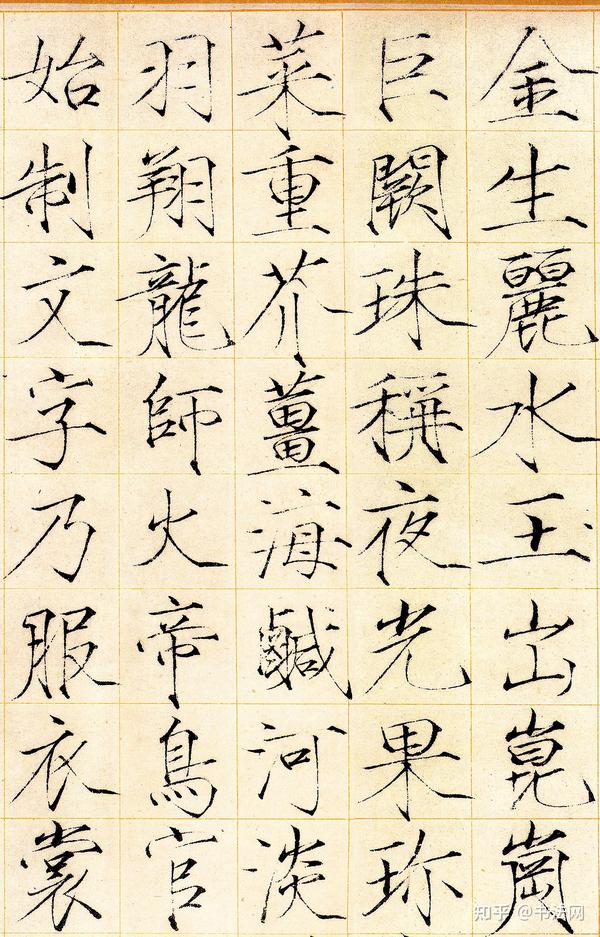 金生麗水玉出崑崗
巨闕珠稱夜光果珎
菜重芥薑海鹹河淡
羽翔龍師火帝鳥官
始制文字乃服衣裳
知乎 @书法网